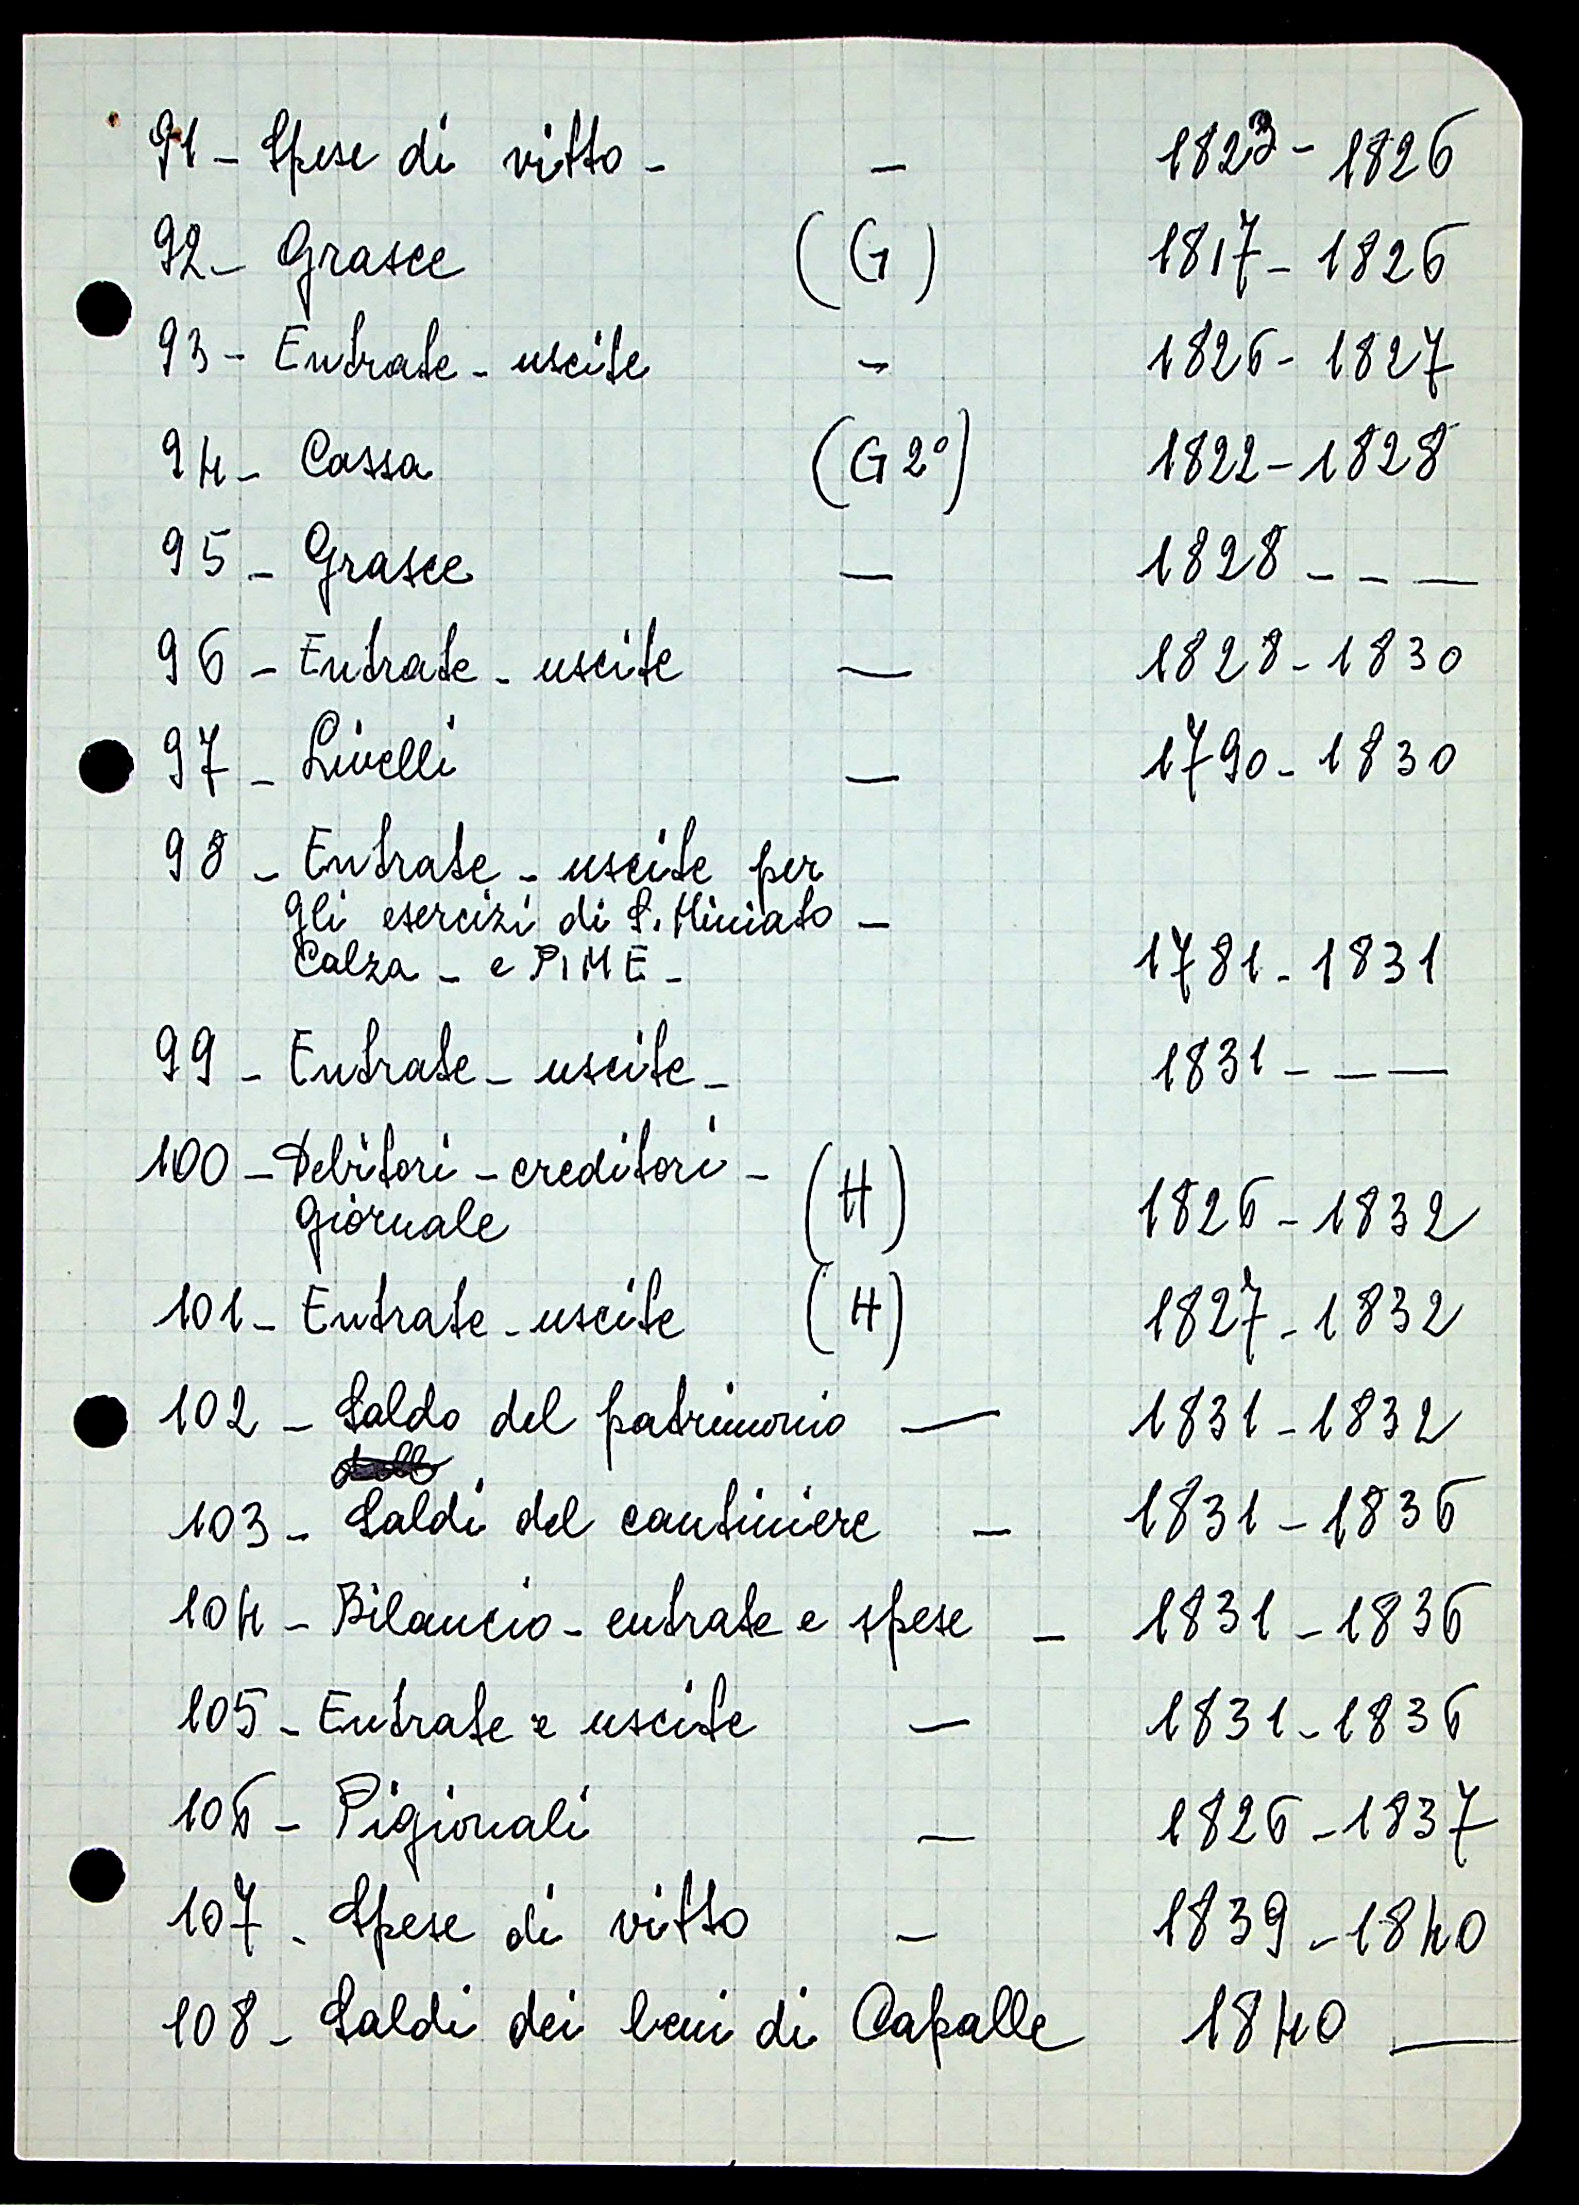 91 - Spese di vitto - - 1823 - 1826
92 - Grasce (G) 1817 - 1826
93 - Entrate - uscite - 1826 - 1827
94 - Cassa (G 2°) 1822 - 1828
95 - Grasce - 1828 - - -
96 - Entrate - uscite - 1828 - 1830
97 - Livelli - 1790 - 1830
98 - Entrate - uscite per
gli esercizi di S. Miniato -
Calza - e PIME - 1781 - 1831
99 - Entrate - uscite - 1831 - - -
100 - Debitori - creditori -
giornale (H) 1826 - 1832
101 - Entrate - uscite (H) 1827 - 1832
102 - Saldo del patrimonio - 1831 - 1832
103 - Saldi del cantiniere - 1831 - 1836
104 - Bilancio - entrate e spese - 1831 - 1836
105 - Entrate e uscite - 1831 - 1836
106 - Pigionali - 1826 - 1837
107 - Spese di vitto - 1839 - 1840
108 - Saldi dei beni di Capalle 1840 -